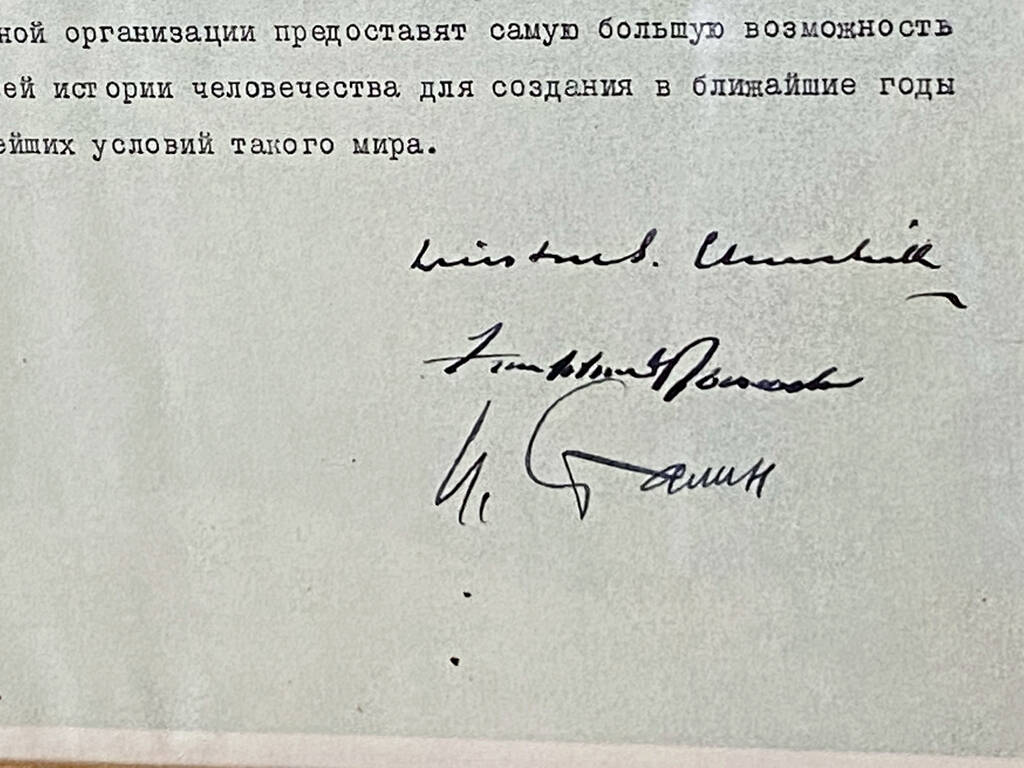 ной организации предоставят самую большую возможность
ей истории человечества для создания в ближайшие годы
ейших условий такого мира.
Winston S. Churchill
Franklin D Roosevelt
И. Сталин